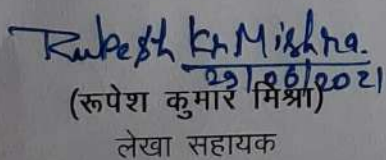 Rupesh Kr Mishra.
29/06/2021
(रूपेश कुमार मिश्रा)
लेखा सहायक